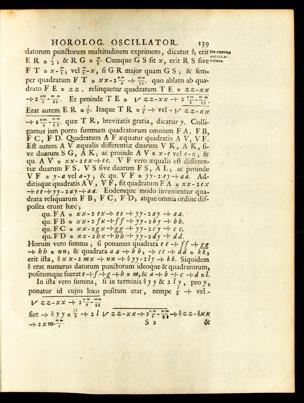 HOROLOG. OSCILLATOR. 139
datorum punctorum multitudinem exprimens, dicatur θ, erit
DE CENTRO OSCILLATIONIS.
Cumque G S sit x, erit R S sive
F T = x - vel - x, si G R major quam G S; & sem-
per quadratum F T = quo ablato ab qua-
drato F E = zz, relinquetur quadratum T E = zz - xx
Et proinde T E =
Erat autem E R = Itaque T R = vel -
quæ T R, brevitatis gratia, dicatur y. Colli-
gamus jam porro summam quadratorum omnium F A, F B,
F C, F D. Quadratum A F æquatur quadratis A V, V F.
Est autem A V æqualis differentiæ duarum V K, A K, si-
ve duarum S G, A K, ac proinde A V = x - e vel e - x, &
qu. A V = xx - 2 ex + ee. V F vero æqualis est differen-
tiæ duarum F S, V S sive duarum F S, A L, ac proinde
V F = y - a vel a - y, & qu. V F = yy - 2 ay + aa. Ad-
ditisque quadratis A V, V F, fit quadratum F A = xx - 2 ex
+ ee + yy - 2 ay + aa. Eodemque modo invenientur qua-
drata reliquarum F B, F C, F D, atque omnia ordine dis-
posita erunt hæc,
qu. F A = xx - 2 ex + ee + yy - 2 ay + aa.
qu. F B = xx - 2 fx + ff + yy - 2 by + bb.
qu. F C = xx - 2 gx + gg + yy - 2 cy + cc.
qu. F D = xx - 2 hx + hh + yy - 2 dy + dd.
Horum vero summa, si ponamus quadrata ee + ff + gg
+ hh = nn; & quadrata aa + bb + cc + dd = kk;
erit ista, θ xx - 2 mx + nn + θ yy - 2 ly + kk. Siquidem
θ erat numerus datorum punctorum ideoque & quadratorum,
positumque fuerat e + f + g + h = m, & a + b + c + d = l.
In ista vero summa, si in terminis θ yy & 2 ly, pro y,
ponatur id cujus loco positum erat, nempe + vel -
fiet
S 2 &